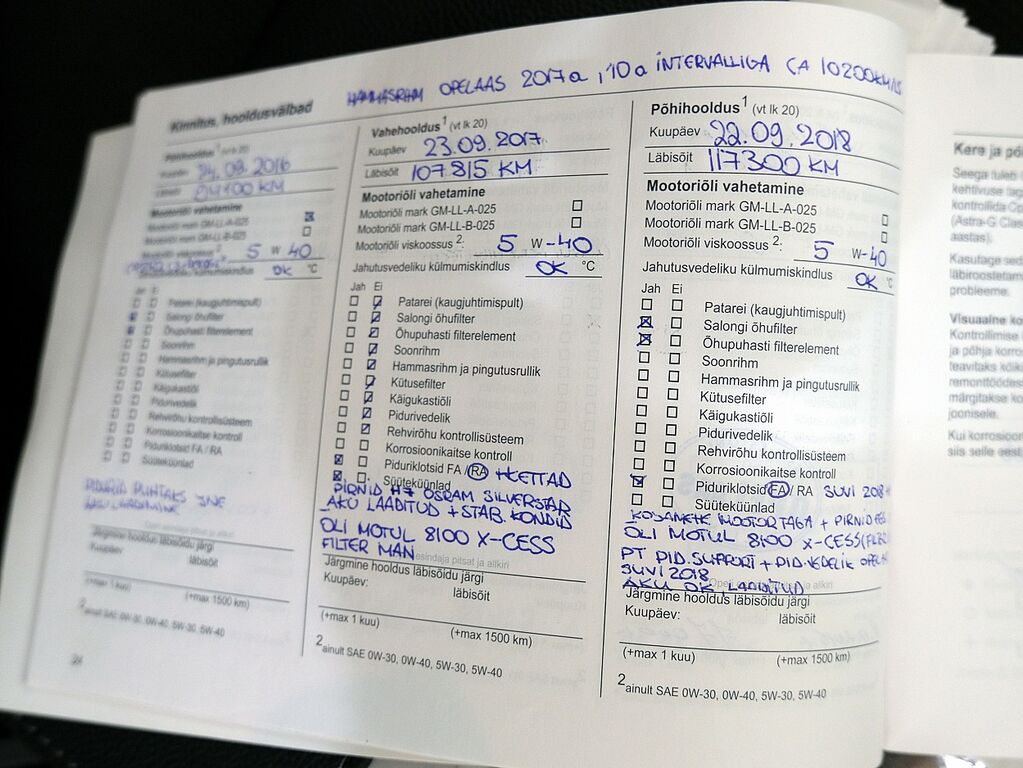 OPELAAS 2017a, '10a INTERVALLIGA CA 10200KM/
Kinnitus, hooldusvälbad
Põhihooldus¹ (vt lk 20)
Kuupäev 24.09.2016
Läbisõit KM
Mootoriõli vahetamine
Mootoriõli mark GM-LL-A-025
Mootoriõli mark GM-LL-B-025
Mootoriõli viskoossus² 5 W - 40
Jahutusvedeliku külmumiskindlus OK °C
Jah Ei
Patarei (kaugjuhtimispult)
Salongi õhufilter
Õhupuhasti filterelement
Soonrihm
Hammasrihm ja pingutusrullik
Kütusefilter
Käigukastiõli
Pidurivedelik
Rehvirõhu kontrollisüsteem
Korrosioonikaitse kontroll
Piduriklotsid FA / RA
Süüteküünlad
PIDURID PUHTAKS JNE
AKU LAADIMINE
Järgmine hooldus läbisõidu järgi
Kuupäev:
läbisõit
(+max 1 kuu)
(+max 1500 km)
2 ainult SAE 0W-30, 0W-40, 5W-30, 5W-40
Vahehooldus¹ (vt lk 20)
Kuupäev 23.09.2017
Läbisõit 107815 KM
Mootoriõli vahetamine
Mootoriõli mark GM-LL-A-025
Mootoriõli mark GM-LL-B-025
Mootoriõli viskoossus ²: 5 W - 40
Jahutusvedeliku külmumiskindlus OK °C
Jah Ei
Patarei (kaugjuhtimispult)
Salongi õhufilter
Õhupuhasti filterelement
Soonrihm
Hammasrihm ja pingutusrullik
Kütusefilter
Käigukastiõli
Pidurivedelik
Rehvirõhu kontrollisüsteem
Korrosioonikaitse kontroll
Piduriklotsid FA / RA + KETTAD
Süüteküünlad
PIRNID H7 OSRAM SILVERSTAR
AKU LAADITUD + STAB. KONDID
ÕLI MOTUL 8100 X-CESS
FILTER MAN
Järgmine hooldus läbisõidu järgi
Kuupäev:
läbisõit
(+max 1 kuu)
(+max 1500 km)
2 ainult SAE 0W-30, 0W-40, 5W-30, 5W-40
Põhihooldus¹ (vt lk 20)
Kuupäev 22.09.2018
Läbisõit 117300 KM
Mootoriõli vahetamine
Mootoriõli mark GM-LL-A-025
Mootoriõli mark GM-LL-B-025
Mootoriõli viskoossus ²: 5 W - 40
Jahutusvedeliku külmumiskindlus OK °C
Jah Ei
Patarei (kaugjuhtimispult)
Salongi õhufilter
Õhupuhasti filterelement
Soonrihm
Hammasrihm ja pingutusrullik
Kütusefilter
Käigukastiõli
Pidurivedelik
Rehvirõhu kontrollisüsteem
Korrosioonikaitse kontroll
Piduriklotsid FA / RA SUVI 2018
Süüteküünlad
KOJAMEHE MOOTOR TAGA + PIRNID
ÕLI MOTUL 8100 X-CESS
PT PID. SUPPORT + PID. VEDELIK
SUVI 2018
AKU OK, LAADITUD
Järgmine hooldus läbisõidu järgi
Kuupäev:
läbisõit
(+max 1 kuu)
(+max 1500 km)
2 ainult SAE 0W-30, 0W-40, 5W-30, 5W-40
Kere ja põ
Seega tuleb
kehtivuse tag
kontrollida Op
(Astra-G Class
aastas).
Kasutage sed
läbiroostetam
probleeme.
Visuaalne ko
Kontrollimise
ja põhja korros
teavitaks kõik
remonttöödes
märgitakse ko
joonisele.
Kui korrosioon
siis selle eest